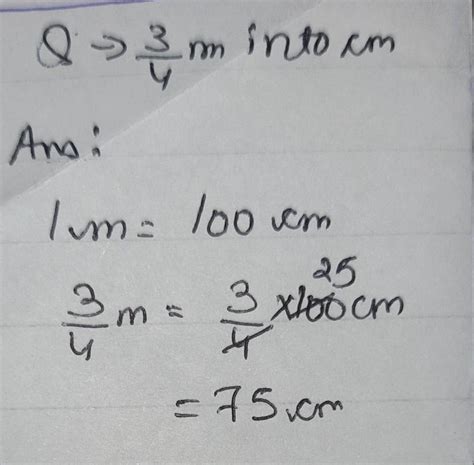 Q → 3/4 m into cm
Ans:
1 m = 100 cm
3/4 m = 3/4 × 100 25 cm
= 75 cm